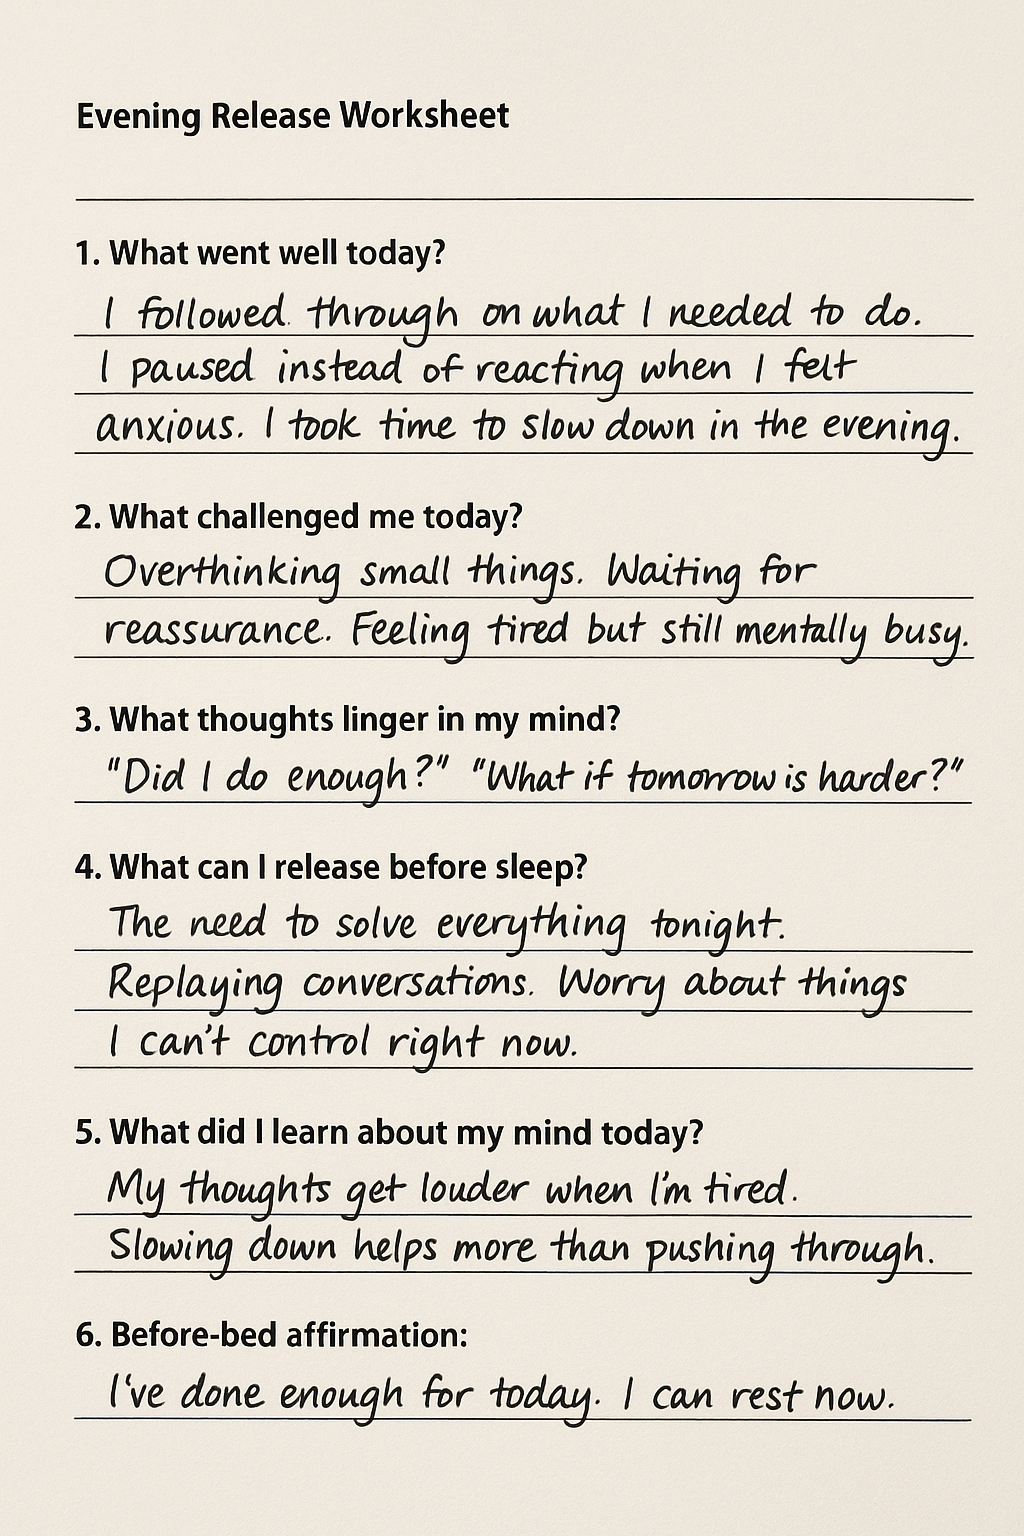 Evening Release Worksheet
1. What went well today?
I followed through on what I needed to do.
I paused instead of reacting when I felt
anxious. I took time to slow down in the evening.
2. What challenged me today?
Overthinking small things. Waiting for
reassurance. Feeling tired but still mentally busy.
3. What thoughts linger in my mind?
"Did I do enough?" "What if tomorrow is harder?"
4. What can I release before sleep?
The need to solve everything tonight.
Replaying conversations. Worry about things
I can't control right now.
5. What did I learn about my mind today?
My thoughts get louder when I'm tired.
Slowing down helps more than pushing through.
6. Before-bed affirmation:
I've done enough for today. I can rest now.